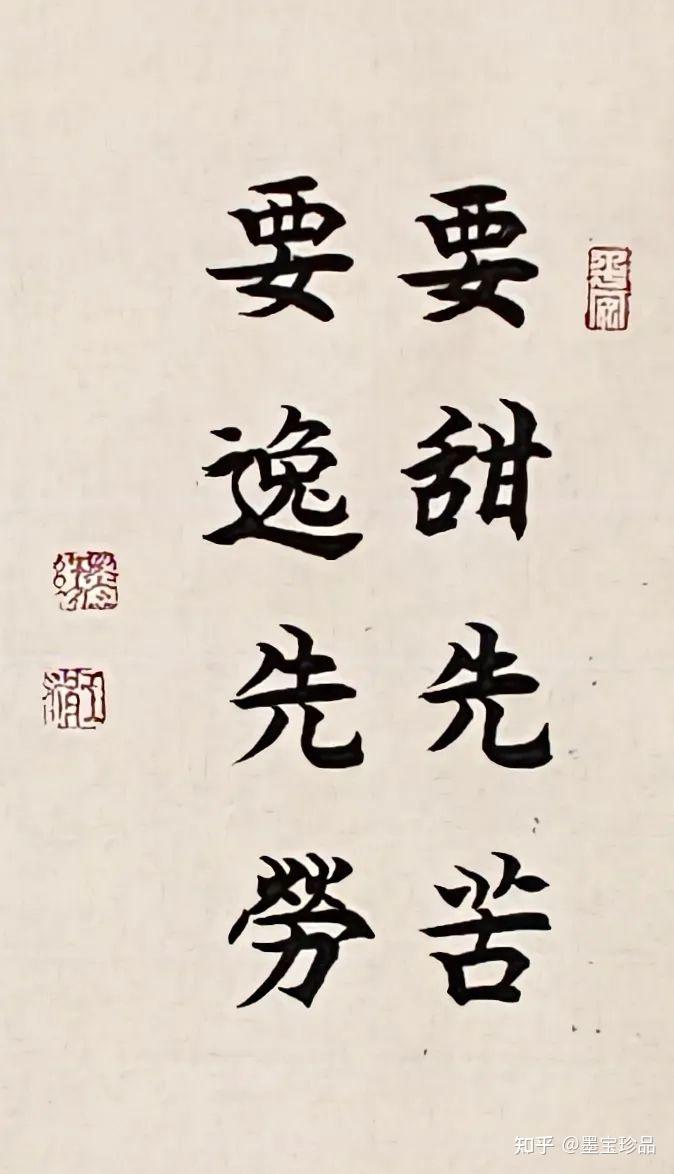 要甜先苦
要逸先勞
知乎 @墨宝珍品